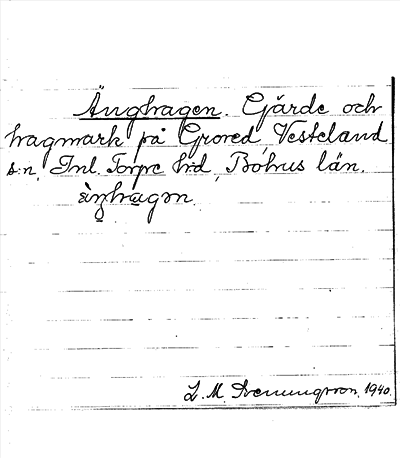 Änghagen. Gärde och
hagmark på Grored Vesteland
s:n, Inl. Torpe hrd, Bohus län.
èŋhagən.
L. M. Svenungsson. 1940.